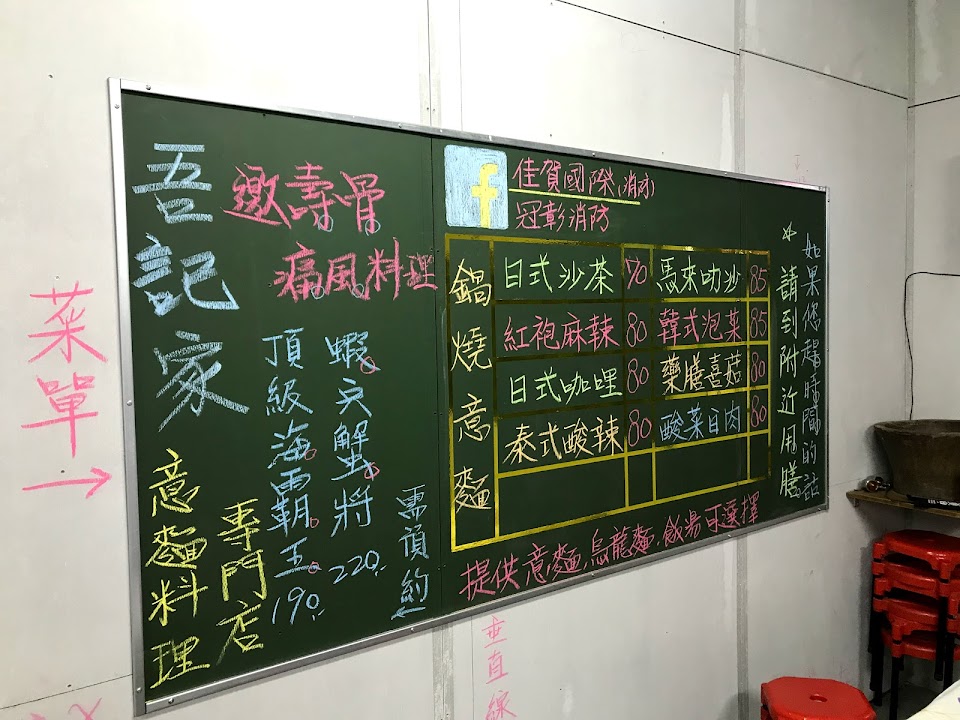 菜單→
吾記家
意麵料理
專門店
邀壽骨
痛風料理
頂級海霸王190
蝦兵蟹將220
需預約
f
佳賀國際(消水)
冠彰消防
鍋燒意麵
日式沙茶 70 馬來叻沙 85
紅袍麻辣 80 韓式泡菜 85
日式咖哩 80 藥膳喜菇 80
泰式酸辣 80 酸菜白肉 80
提供意麵.烏龍麵.飯湯可選擇
如果您趕時間的話
☆請到附近用膳
垂直線